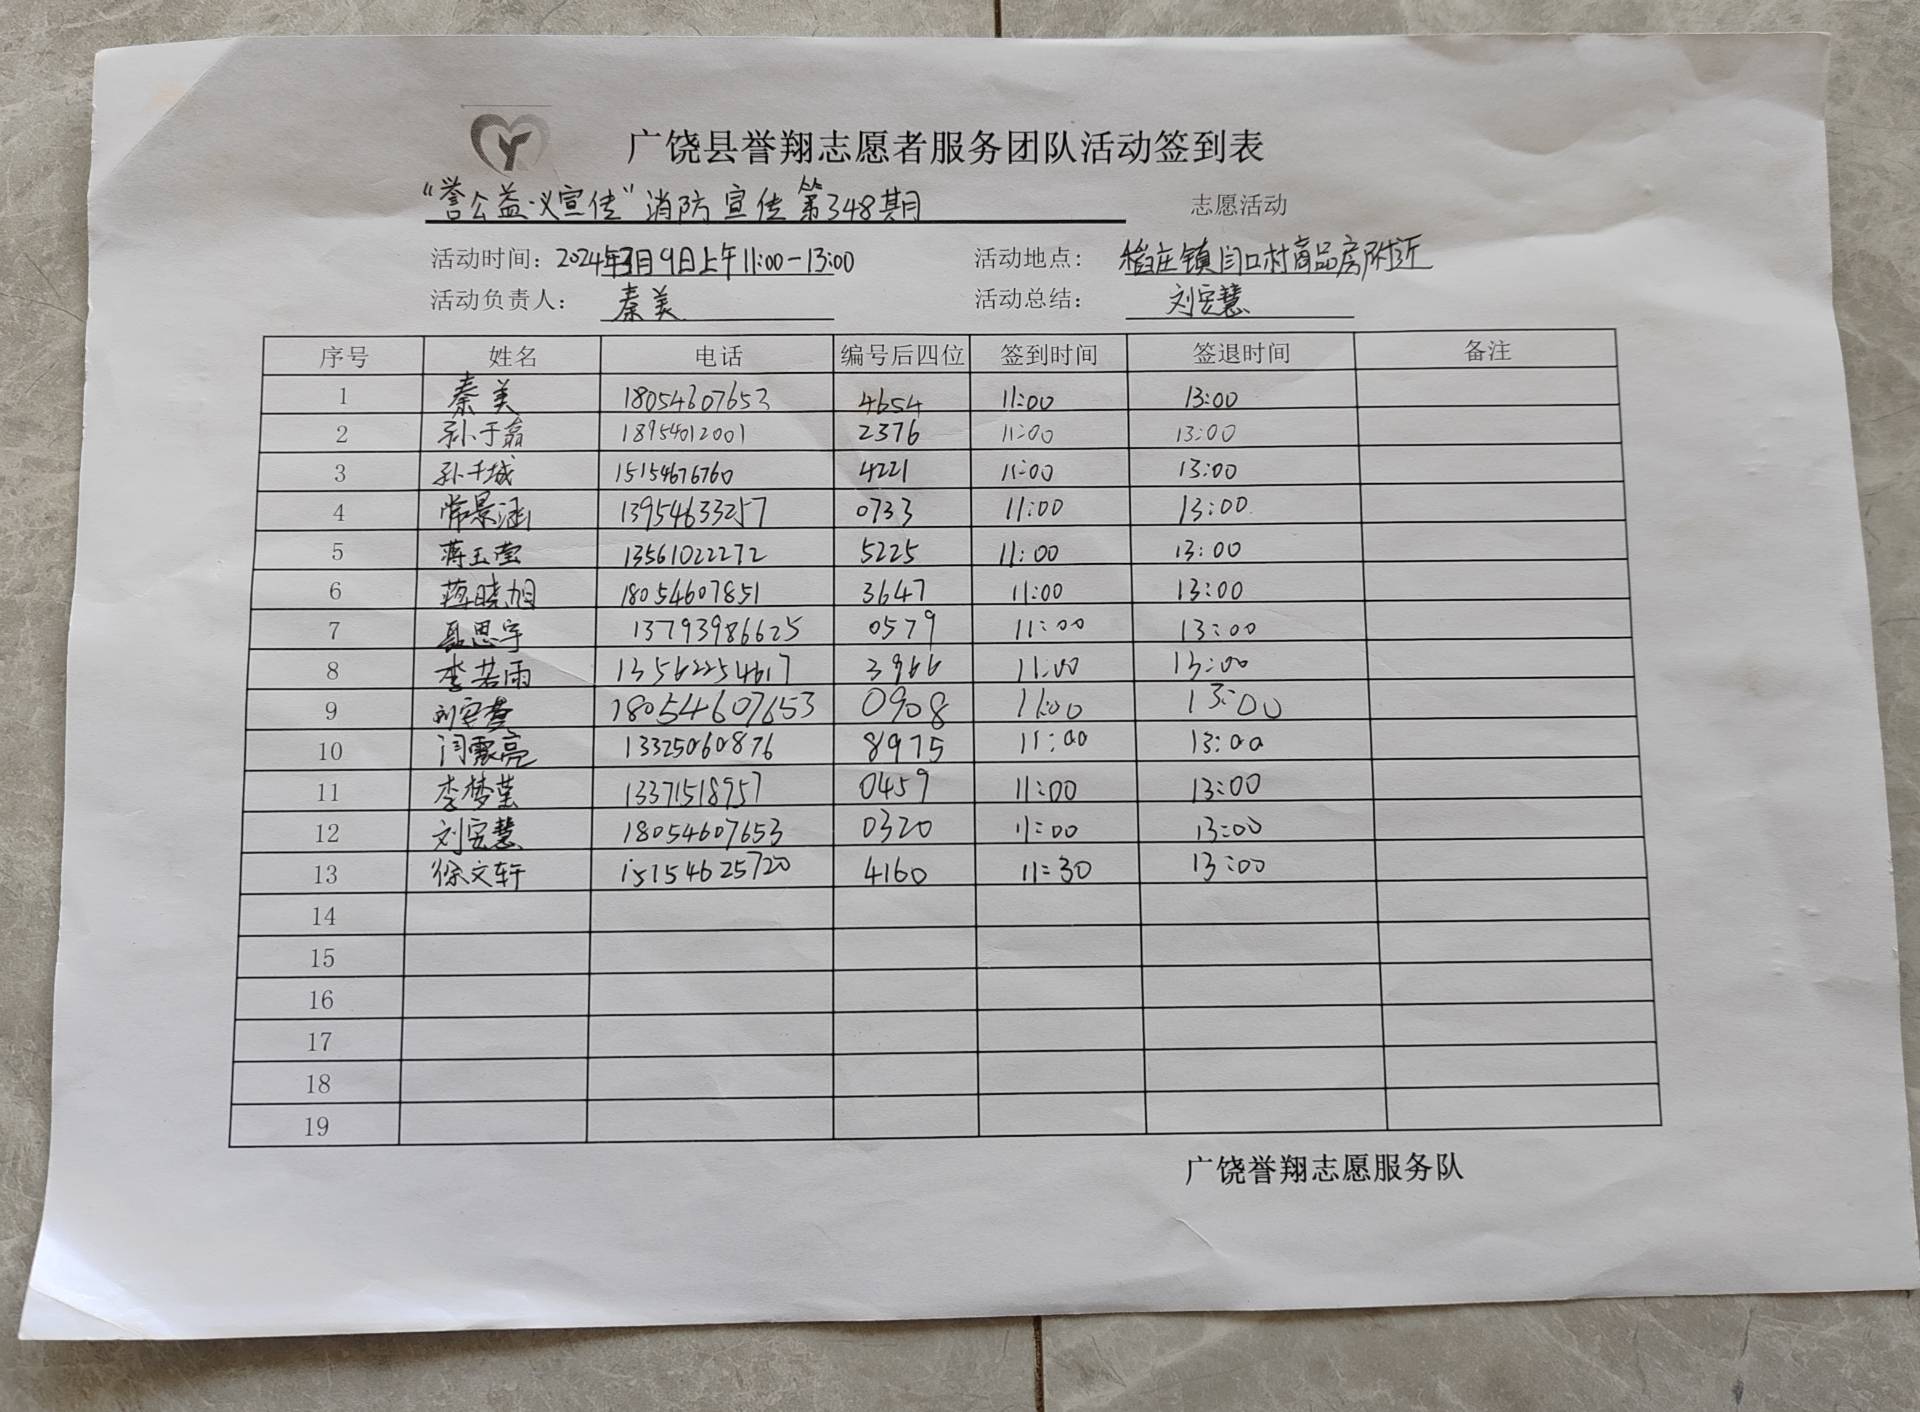 广饶县誉翔志愿者服务团队活动签到表
“誉公益·义宣传”消防宣传第348期 志愿活动
活动时间：2024年3月9日上午11:00-13:00 活动地点：稻庄镇闫口村商品房附近
活动负责人：秦美 活动总结：刘安慧
序号 姓名 电话 编号后四位 签到时间 签退时间 备注
1 秦美 18054607653 4654 11:00 13:00
2 孙于翕 18954012001 2376 11:00 13:00
3 孙千城 15154676760 4221 11:00 13:00
4 常景涵 13954633257 0733 11:00 13:00
5 蒋玉莹 13561022272 5225 11:00 13:00
6 蒋晓旭 18054607851 3647 11:00 13:00
7 聂思宇 13793986625 0579 11:00 13:00
8 李若雨 13562254617 3966 11:00 13:00
9 刘安 18054607653 0908 11:00 13:00
10 闫亮 13325060876 8975 11:00 13:00
11 李梦莹 13371518957 0459 11:00 13:00
12 刘安慧 18054607653 0320 11:00 13:00
13 徐文轩 15154625720 4160 11:30 13:00
14
15
16
17
18
19
广饶誉翔志愿服务队